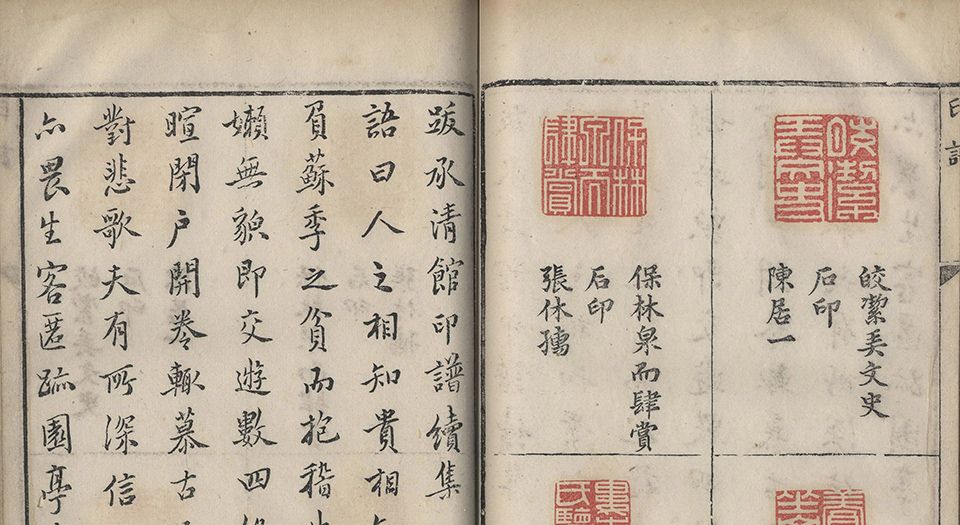 皎潔美文史
皎潔美文史
石印
陳居一
保林泉而肆賞
保林泉而肆賞
石印
張休孺
跋承清館印譜續集
語曰人之相知貴相
負蘇季之貧而抱稽
嬾無貌即交遊數四
暄閉戶開卷輒慕古
對悲歌夫有所深信
亦畏生客匿跡園亭